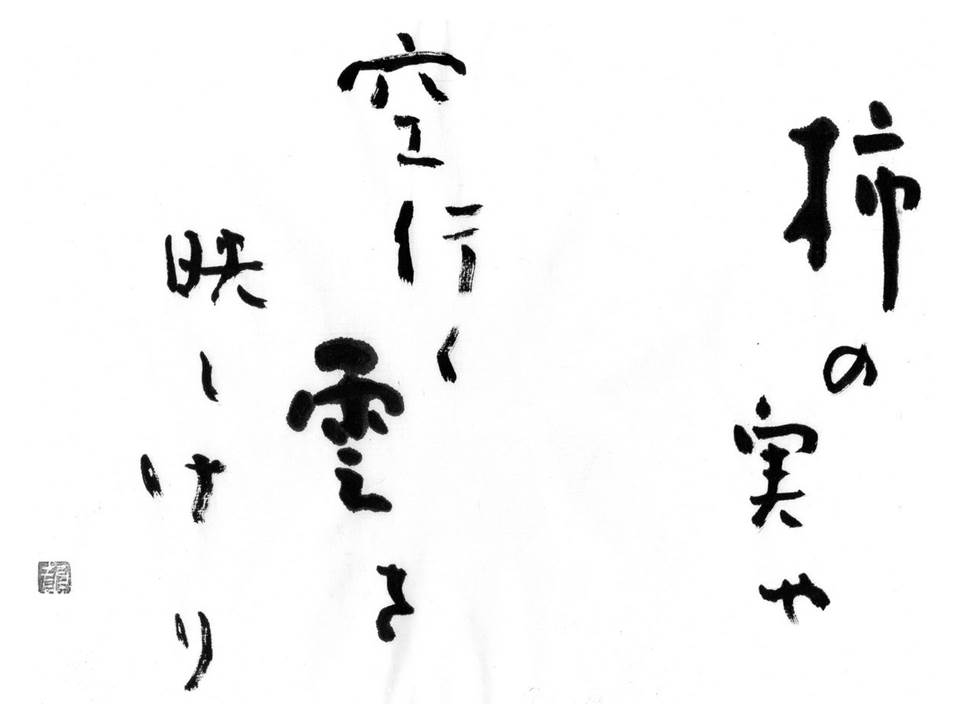 柿の実や
空行く雲を
映しけり